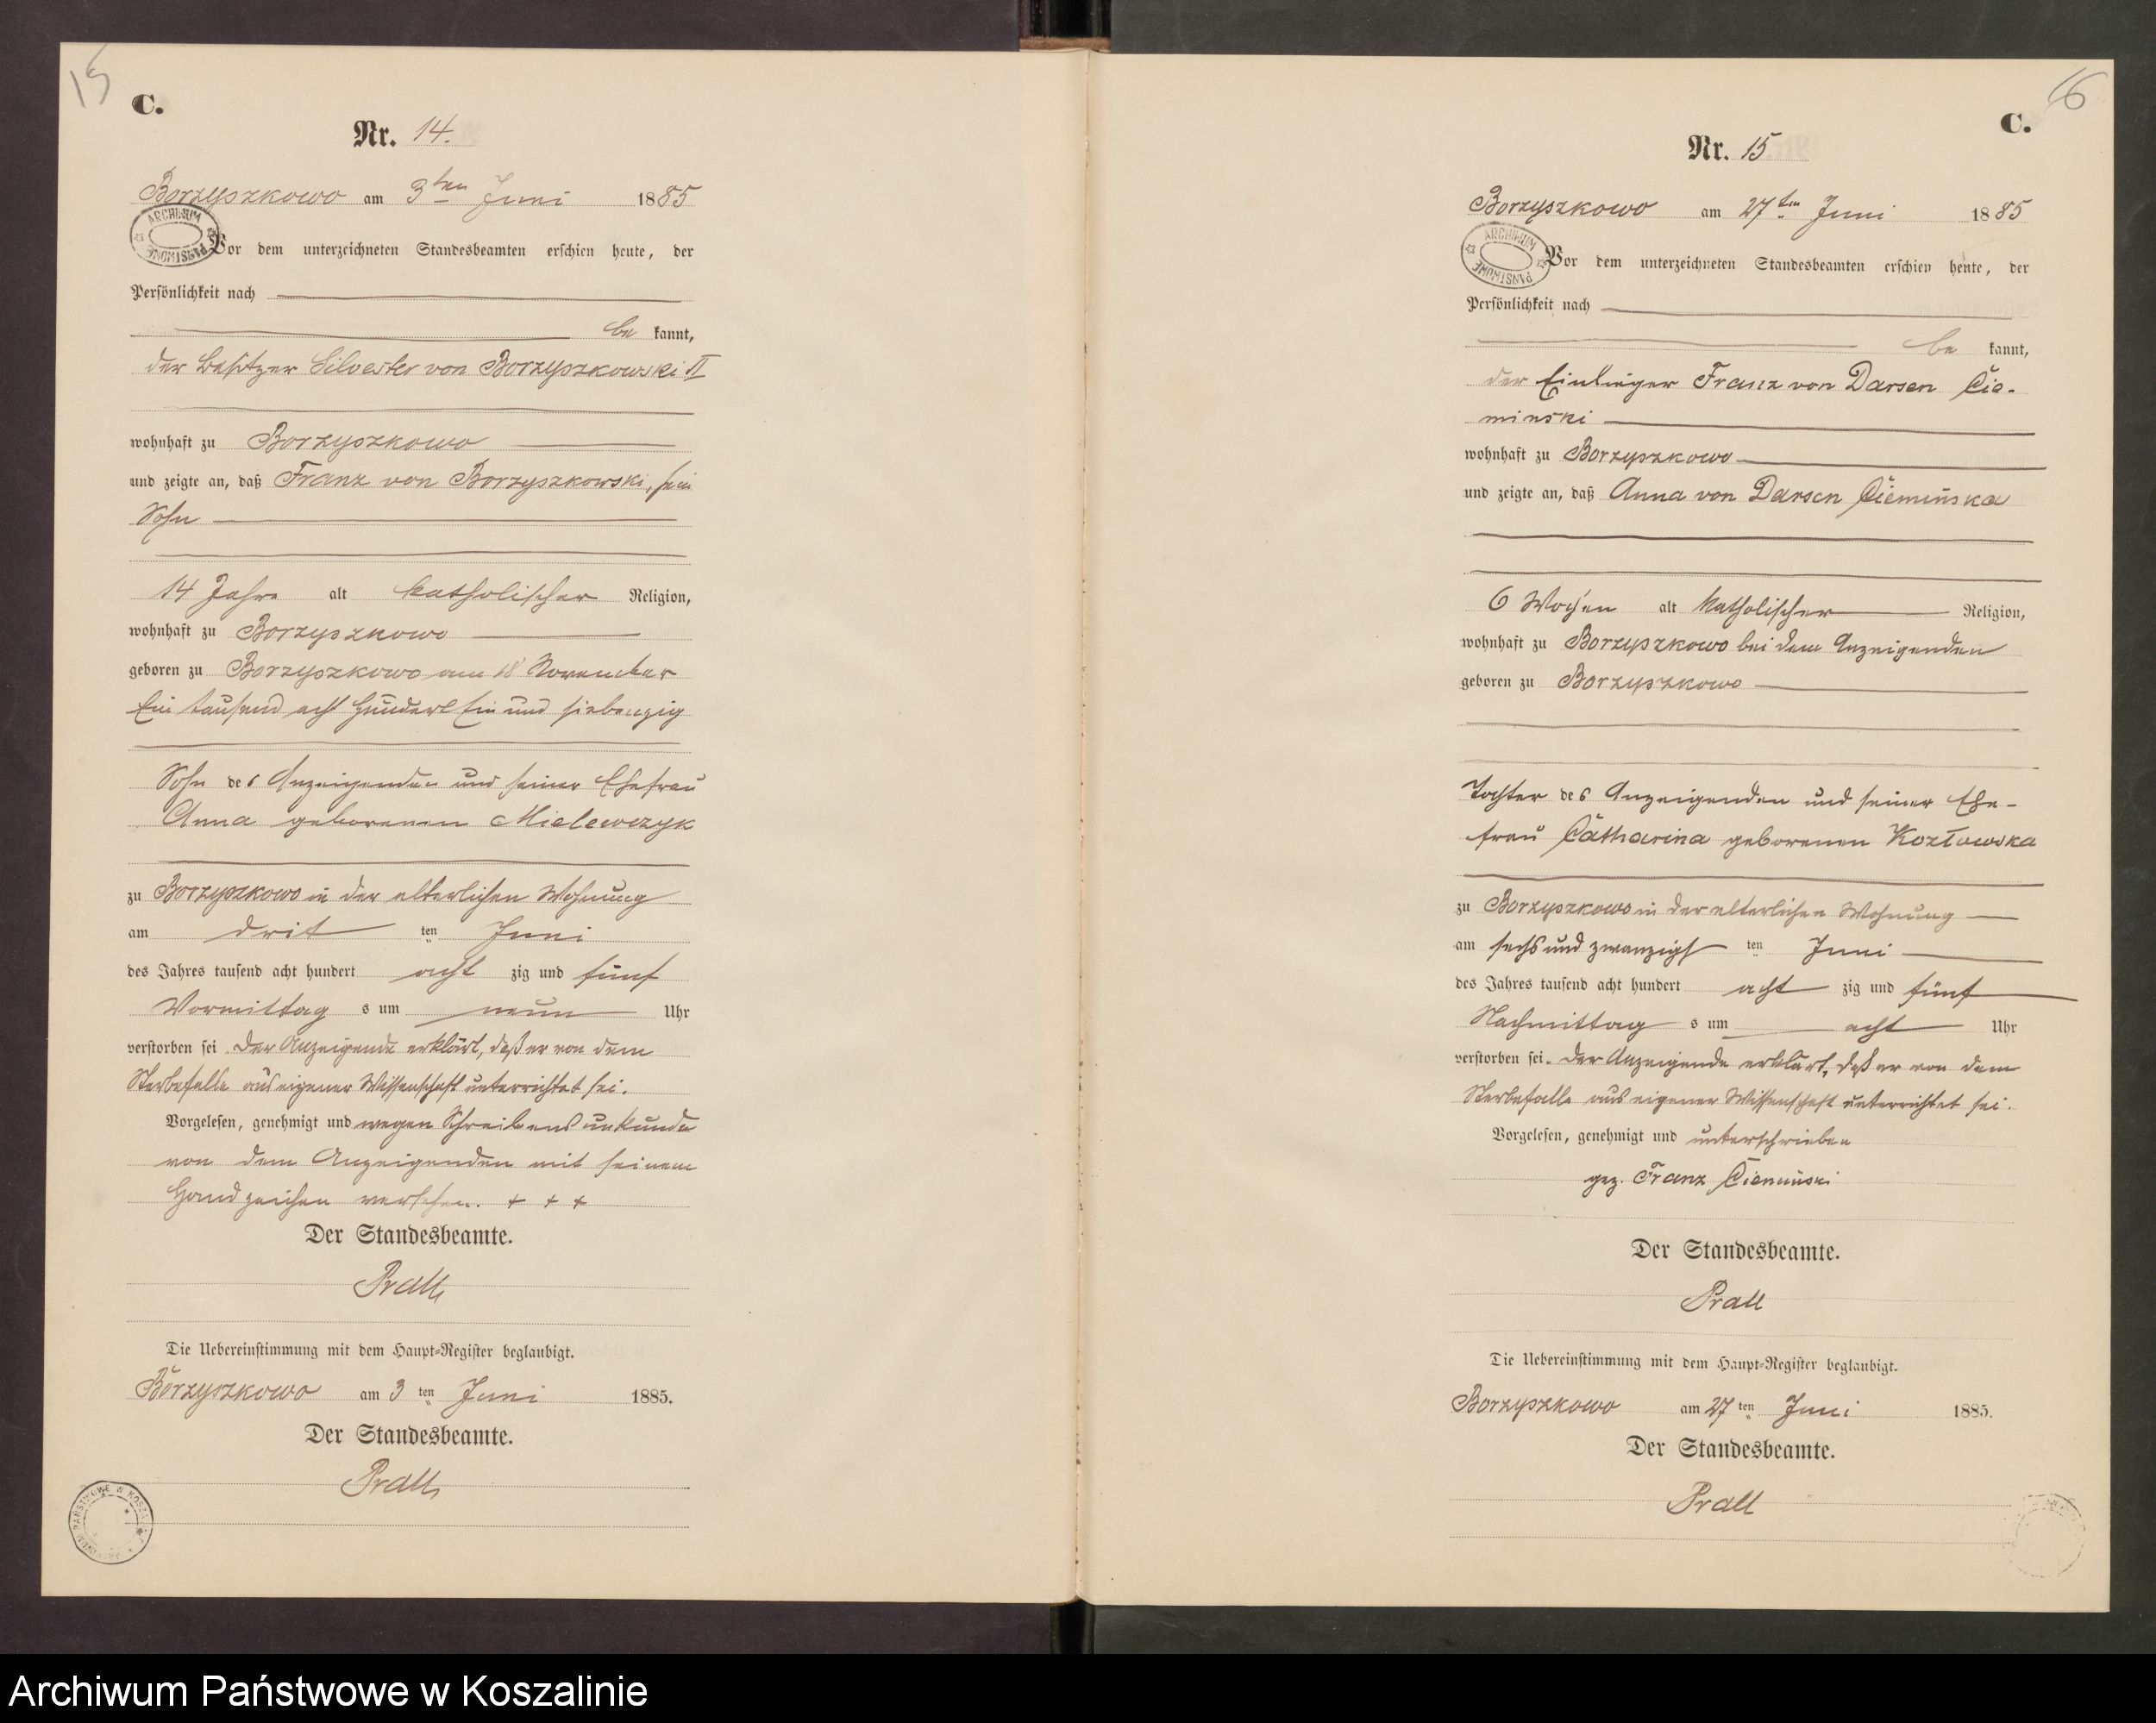 15
C.
Nr. 14.
Borzyszkowo am 3ten Juni 1885
ARCHIWUM PAŃSTWOWE
Vor dem unterzeichneten Standesbeamten erschien heute, der
Persönlichkeit nach
be kannt,
der Besitzer Silvester von Borzyszkowski II
wohnhaft zu Borzyszkowo
und zeigte an, daß Franz von Borzyszkowski, sein
Sohn
14 Jahre alt katholischer Religion,
wohnhaft zu Borzyszkowo
geboren zu Borzyszkowo am 18 November
Ein tausend acht hundert Ein und siebenzig
Sohn des Anzeigenden und seiner Ehefrau
Anna geborenen Mielewczyk
zu Borzyszkowo in der elterlichen Wohnung
am drit ten Juni
des Jahres tausend acht hundert acht zig und fünf
Vormittag s um neun Uhr
verstorben sei. Der Anzeigende erklärt, daß er von dem
Sterbefalle aus eigener Wissenschaft unterrichtet sei.
Vorgelesen, genehmigt und wegen Schreibens unkunde
von dem Anzeigenden mit seinem
Handzeichen versehen. + + +
Der Standesbeamte.
Prall
Die Uebereinstimmung mit dem Haupt-Register beglaubigt.
Borzyszkowo am 3 ten Juni 1885.
Der Standesbeamte.
Prall
16
C.
Nr. 15
Borzyszkowo am 27ten Juni 1885
ARCHIWUM PAŃSTWOWE
Vor dem unterzeichneten Standesbeamten erschien heute, der
Persönlichkeit nach
be kannt,
der Einlieger Franz von Darsen Cie-
minski
wohnhaft zu Borzyszkowo
und zeigte an, daß Anna von Darsen Ciemińska
6 Wochen alt katholischer Religion,
wohnhaft zu Borzyszkowo bei dem Anzeigenden
geboren zu Borzyszkowo
Tochter des Anzeigenden und seiner Ehe-
frau Catharina geborenen Kozłowska
zu Borzyszkowo in der elterlichen Wohnung
am sechs und zwanzigs ten Juni
des Jahres tausend acht hundert acht zig und fünf
Nachmittag s um acht Uhr
verstorben sei. Der Anzeigende erklärt, daß er von dem
Sterbefalle aus eigener Wissenschaft unterrichtet sei.
Vorgelesen, genehmigt und unterschrieben
gez. Franz Ciemiński
Der Standesbeamte.
Prall
Die Uebereinstimmung mit dem Haupt-Register beglaubigt.
Borzyszkowo am 27 ten Juni 1885.
Der Standesbeamte.
Prall
Archiwum Państwowe w Koszalinie